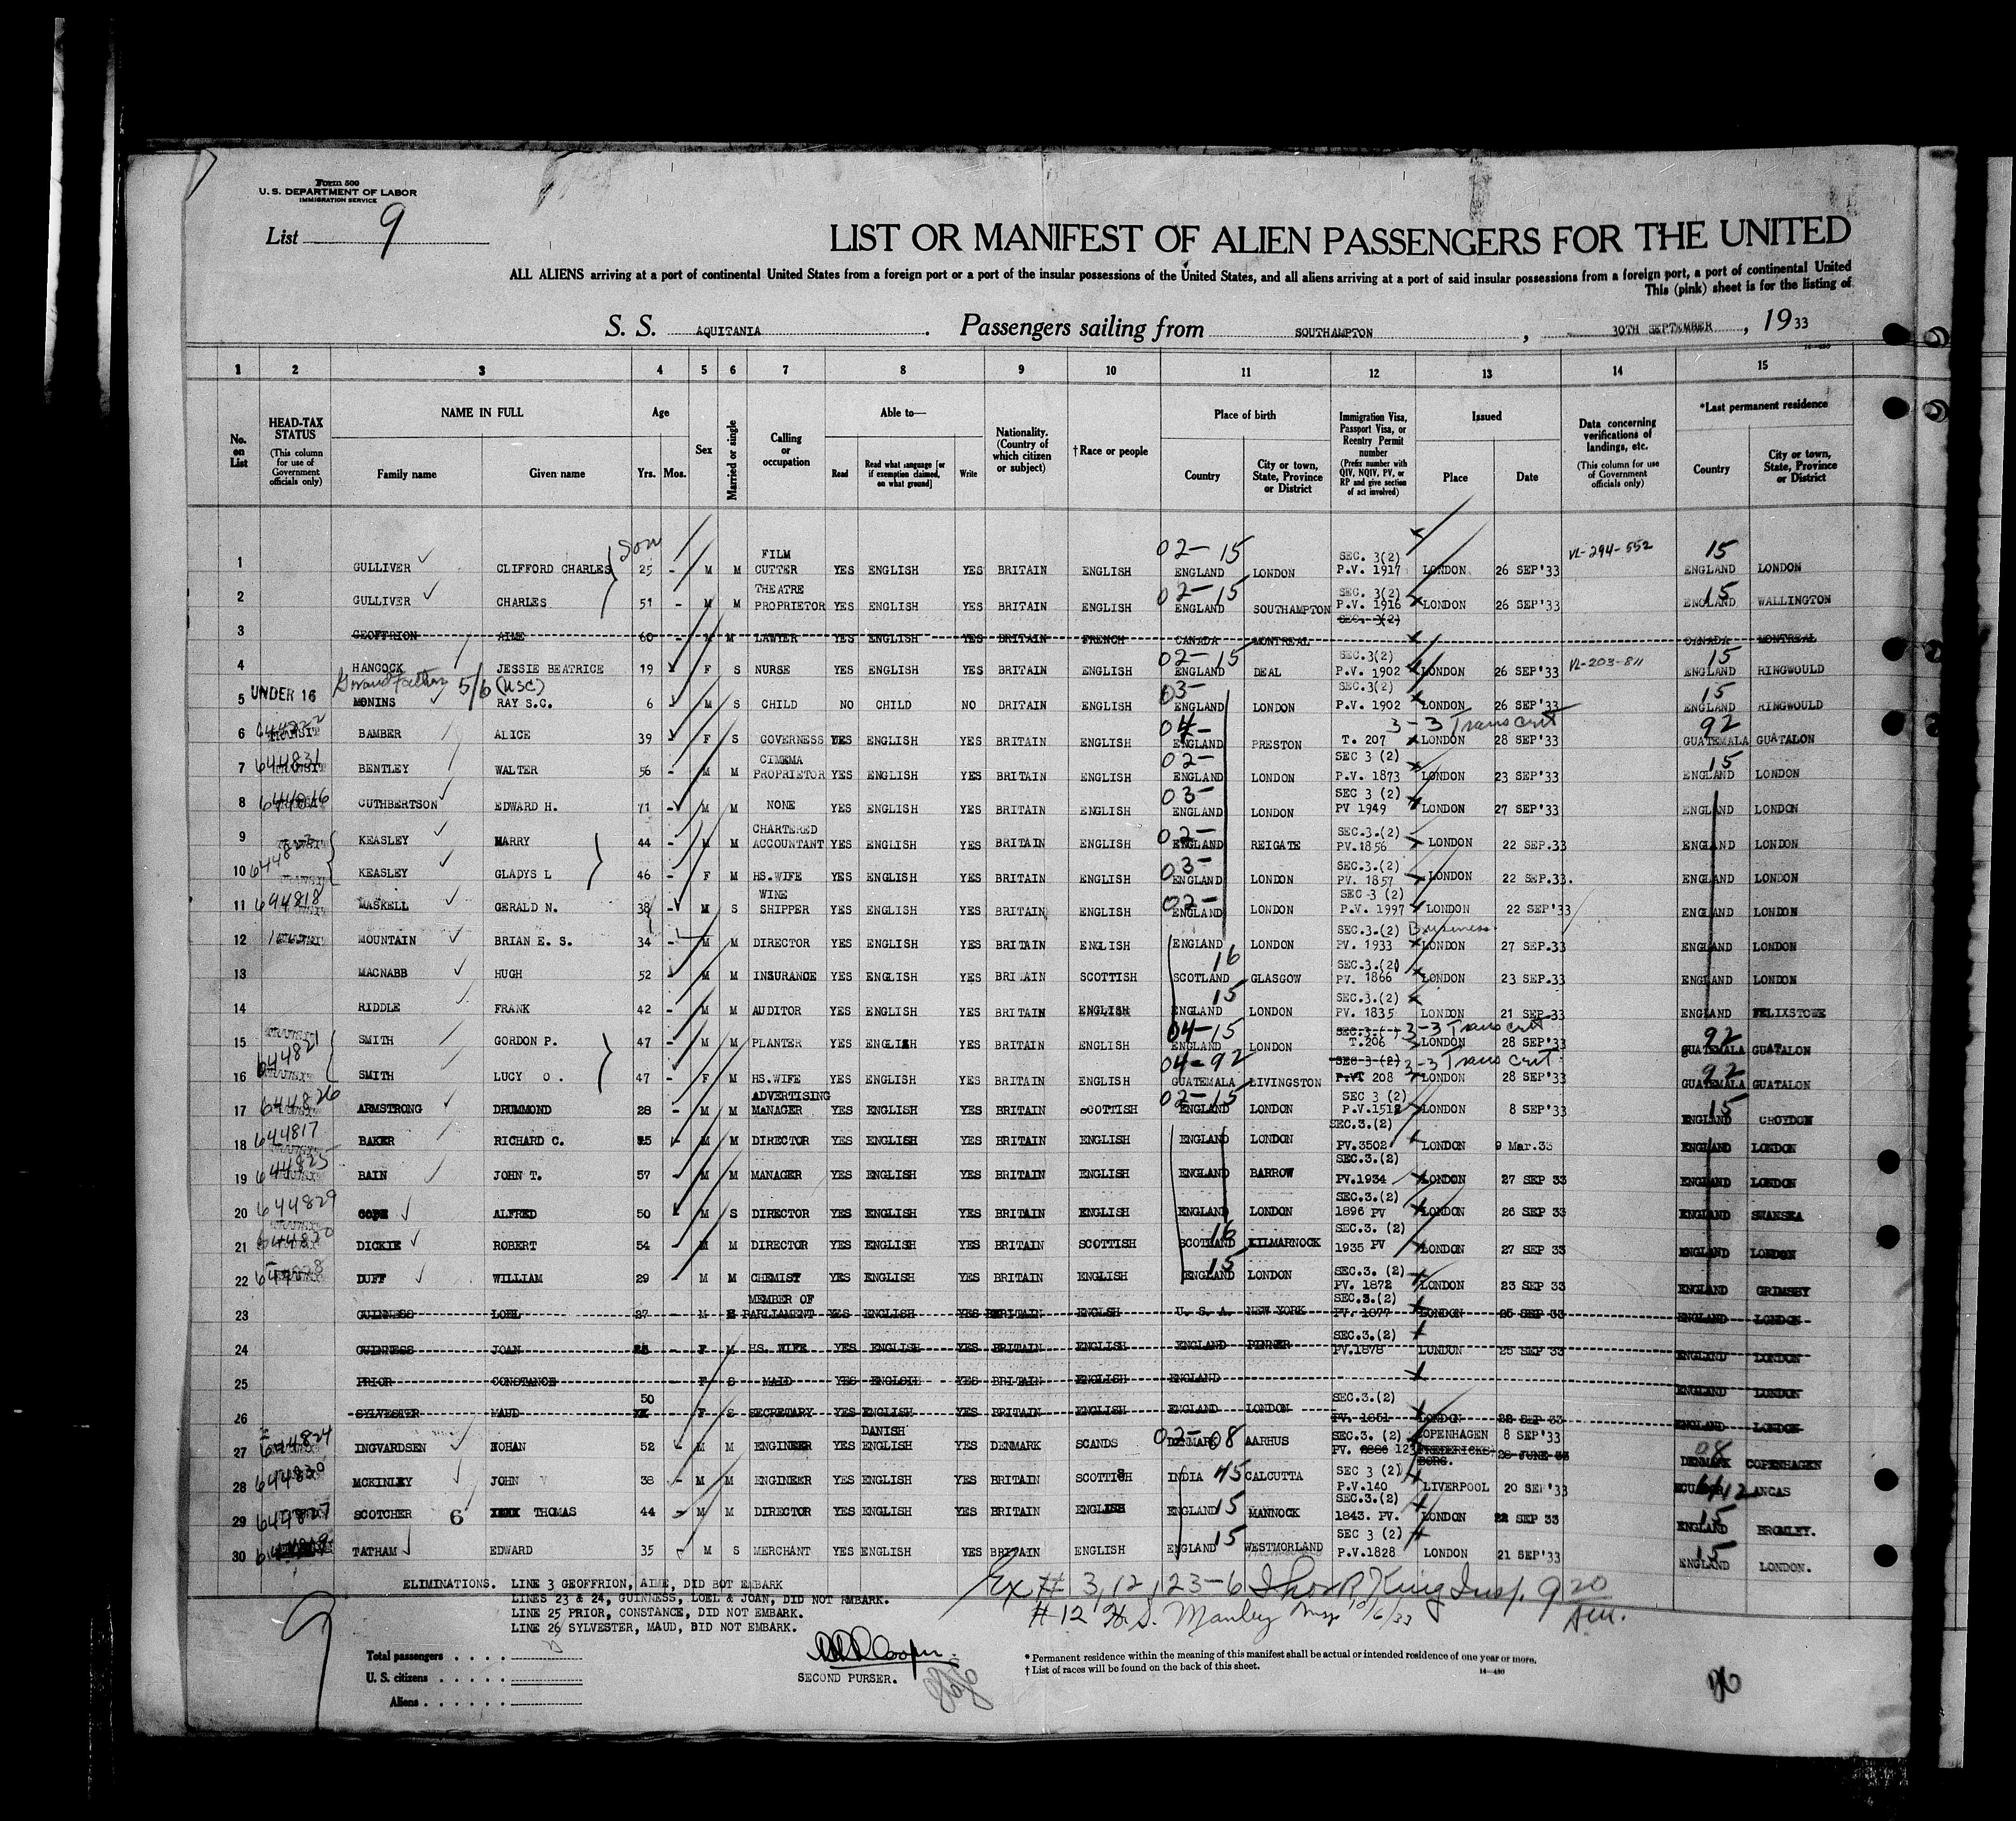 Form 500
U. S. DEPARTMENT OF LABOR
IMMIGRATION SERVICE
List 9
LIST OR MANIFEST OF ALIEN PASSENGERS FOR THE UNITED
ALL ALIENS arriving at a port of continental United States from a foreign port or a port of the insular possessions of the United States, and all aliens arriving at a port of said insular possessions from a foreign port, a port of continental United
This (pink) sheet is for the listing of
S. S. AQUITANIA. Passengers sailing from SOUTHAMPTON, 30TH SEPTEMBER, 1933
1 2 3 4 5 6 7 8 9 10 11 12 13 14 15
No. on List
HEAD-TAX STATUS (This column for use of Government officials only)
NAME IN FULL Family name Given name
Age Yrs. Mos.
Sex
Married or single
Calling or occupation
Able to— Read Read what language [or if exemption claimed, on what ground] Write
Nationality. (Country of which citizen or subject)
†Race or people
Place of birth Country City or town, State, Province or District
Immigration Visa, Passport Visa, or Reentry Permit number (Prefix number with QIV, NQIV, PV, or RP and give section of act involved)
Issued Place Date
Data concerning verifications of landings, etc. (This column for use of Government officials only)
*Last permanent residence Country City or town, State, Province or District
1 GULLIVER CLIFFORD CHARLES Son 25 - M M FILM CUTTER YES ENGLISH YES BRITAIN ENGLISH 02-15 ENGLAND LONDON SEC. 3(2) P.V. 1917 LONDON 26 SEP'33 VL-294-552 15 ENGLAND LONDON
2 GULLIVER CHARLES 51 - M M THEATRE PROPRIETOR YES ENGLISH YES BRITAIN ENGLISH 02-15 ENGLAND SOUTHAMPTON SEC. 3(2) P.V. 1916 LONDON 26 SEP'33 15 ENGLAND WALLINGTON
3 GEOFFRION AIME 60 - M M LAWYER YES ENGLISH YES BRITAIN FRENCH CANADA MONTREAL SEC. 3(2) CANADA MONTREAL
4 HANCOCK JESSIE BEATRICE 19 F S NURSE YES ENGLISH YES BRITAIN ENGLISH 02-15 ENGLAND DEAL SEC.3(2) P.V. 1902 LONDON 26 SEP'33 VL-203-811 15 ENGLAND RINGWOULD
Grandfather 5/6 (USC)
5 UNDER 16 MONINS RAY S.C. 6 M S CHILD NO CHILD NO BRITAIN ENGLISH 03- ENGLAND LONDON SEC.3(2) P.V. 1902 LONDON 26 SEP'33 15 ENGLAND RINGWOULD
6 BAMBER ALICE 39 - F S GOVERNESS YES ENGLISH YES BRITAIN ENGLISH 04- ENGLAND PRESTON 3-3 Trans cert T. 207 LONDON 28 SEP'33 92 GUATEMALA GUATALON
7 644831 BENTLEY WALTER 56 - M M CIMEMA PROPRIETOR YES ENGLISH YES BRITAIN ENGLISH 02- ENGLAND LONDON SEC 3 (2) P.V. 1873 LONDON 23 SEP'33 15 ENGLAND LONDON
8 CUTHBERTSON EDWARD H. 71 - M M NONE YES ENGLISH YES BRITAIN ENGLISH 03- ENGLAND LONDON SEC 3 (2) PV 1949 LONDON 27 SEP'33 ENGLAND LONDON
9 KEASLEY HARRY 44 - M M CHARTERED ACCOUNTANT YES ENGLISH YES BRITAIN ENGLISH 02- ENGLAND REIGATE SEC.3.(2) PV.1856 LONDON 22 SEP.33 ENGLAND LONDON
10 KEASLEY GLADYS L 46 - F M HS.WIFE YES ENGLISH YES BRITAIN ENGLISH 03- ENGLAND LONDON SEC.3.(2) PV. 1857 LONDON 22 SEP.33. ENGLAND LONDON
11 644818 MASKELL GERALD N. 38 - M S WINE SHIPPER YES ENGLISH YES BRITAIN ENGLISH 02- ENGLAND LONDON SEC 3 (2) P.V. 1997 LONDON 22 SEP'33 ENGLAND LONDON
12 MOUNTAIN BRIAN E. S. 34 - M M DIRECTOR YES ENGLISH YES BRITAIN ENGLISH ENGLAND LONDON SEC.3.(2) Business PV. 1933 LONDON 27 SEP.33 ENGLAND LONDON
13 MACNABB HUGH 52 M M INSURANCE YES ENGLISH YES BRITAIN SCOTTISH 16 SCOTLAND GLASGOW SEC.3.(2) PV. 1866 LONDON 23 SEP.33 ENGLAND LONDON
14 RIDDLE FRANK 42 - M M AUDITOR YES ENGLISH YES BRITAIN ENGLISH 15 ENGLAND LONDON SEC.3.(2) PV. 1835 LONDON 21 SEP.33 ENGLAND FELIXSTOWE
15 644821 SMITH GORDON P. 47 - M M PLANTER YES ENGLISH YES BRITAIN ENGLISH 04-15 ENGLAND LONDON 3-3 Trans cert T.206 LONDON 28 SEP'33 92 GUATEMALA GUATALON
16 SMITH LUCY O. 47 - F M HS.WIFE YES ENGLISH YES BRITAIN ENGLISH 04-92 GUATEMALA LIVINGSTON SEC 3 (2) 3-3 Trans cert 208 LONDON 28 SEP'33 92 GUATEMALA GUATALON
17 644826 ARMSTRONG DRUMMOND 28 - M M ADVERTISING MANAGER YES ENGLISH YES BRITAIN SCOTTISH 02-15 ENGLAND LONDON SEC 3 (2) P.V.1512 LONDON 8 SEP'33 15 ENGLAND CROYDON
18 644817 BAKER RICHARD C. M M DIRECTOR YES ENGLISH YES BRITAIN ENGLISH ENGLAND LONDON SEC.3.(2) PV.3502 LONDON 9 Mar.33 ENGLAND LONDON
19 644825 BAIN JOHN T. 57 M M MANAGER YES ENGLISH YES BRITAIN ENGLISH ENGLAND BARROW SEC.3.(2) PV.1934 LONDON 27 SEP 33 ENGLAND LONDON
20 644829 COPE ALFRED 50 M S DIRECTOR YES ENGLISH YES BRITAIN ENGLISH ENGLAND LONDON SEC.3.(2) 1896 PV LONDON 26 SEP 33 ENGLAND SWANSEA
21 DICKIE ROBERT 54 M M DIRECTOR YES ENGLISH YES BRITAIN SCOTTISH 16 SCOTLAND KILMARNOCK SEC.3. (2) 1935 PV LONDON 27 SEP 33 ENGLAND LONDON
22 DUFF WILLIAM 29 M M CHEMIST YES ENGLISH YES BRITAIN ENGLISH 15 ENGLAND LONDON SEC.3. (2) PV. 1872 LONDON 23 SEP 33 ENGLAND GRIMSBY
23 GUINNESS LOEL 27 - M MEMBER OF PARLIAMENT YES ENGLISH YES BRITAIN ENGLSH U. S. A. NEW YORK SEC.3.(2) PV. 1877 LONDON 25 SEP 33 ENGLAND LONDON
24 GUINNESS JOAN - F M HS. WIFE YES ENGLISH YES BRITAIN ENGLISH ENGLAND PINNER SEC.3.(2) PV.1878 LONDON 25 SEP 33 ENGLAND LONDON
25 PRIOR CONSTANCE - F S MAID YES ENGLSIH YES BRITAIN ENGLISH ENGLAND ENGLAND LONDON
26 SYLVESTER MAUD 50 F S SECRETARY YES ENGLISH YES BRITAIN ENGLISH ENGLAND LONDON SEC.3.(2) PV. 1851 LONDON 22 SEP 33 ENGLAND LONDON
27 644824 INGVARDSEN HOHAN 52 - M M ENGINEER YES DANISH ENGLISH YES DENMARK SCANDS 02-08 DENMARK AARHUS SEC.3. (2) PV. 123 COPENHAGEN 8 SEP'33 FREDERICKSBORG. 28 JUNE 33 08 DENMARK COPENHAGEN
28 MCKINLEY JOHN 38 - M M ENGINEER YES ENGLISH YES BRITAIN SCOTTISH INDIA 45 CALCUTTA SEC 3 (2) P.V.140 LIVERPOOL 20 SEP'33 ECUADOR ANCAS
29 644827 SCOTCHER 6 THOMAS 44 - M M DIRECTOR YES ENGLISH YES BRITAIN ENGLISH ENGLAND 15 MANNOCK SEC.3.(2) 1843. PV. LONDON 22 SEP 33 15 ENGLAND BROMLEY.
30 TATHAM EDWARD 35 M S MERCHANT YES ENGLISH YES BRITAIN ENGLISH ENGLAND 15 WESTMORLAND SEC 3 (2) P.V.1828 LONDON 21 SEP'33 15 ENGLAND LONDON.
ELIMINATIONS. LINE 3 GEOFFRION, AIME, DID BOT EMBARK
LINES 23 & 24, GUINNESS, LOEL & JOAN, DID NOT EMBARK.
LINE 25 PRIOR, CONSTANCE, DID NOT EMBARK.
LINE 26 SYLVESTER, MAUD, DID NOT EMBARK.
Ex # 3, 12, 23-6 Thos R King Insp. 920 Am.
#12 H. S. Manley Insp 10/6/33
Total passengers
U. S. citizens
Aliens
Cooper.
SECOND PURSER.
* Permanent residence within the meaning of this manifest shall be actual or intended residence of one year or more.
† List of races will be found on the back of this sheet.
14—480